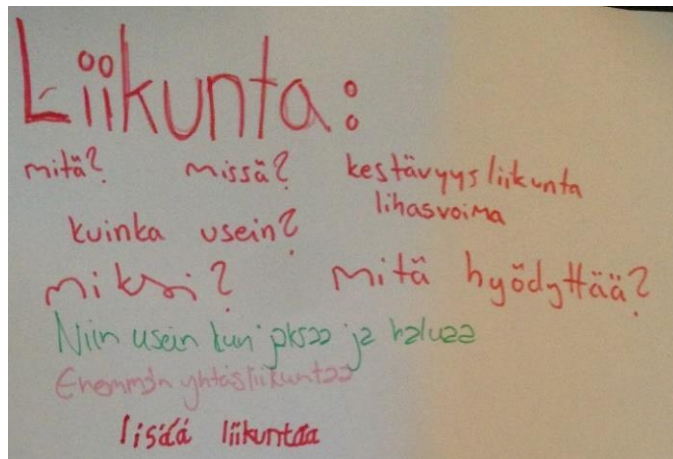 Liikunta:
mitä? missä? kestävyysliikunta
lihasvoima
kuinka usein?
miksi? mitä hyödyttää?
Niin usein kun jaksaa ja haluaa
Enemmän yhtäsliikuntaa
lisää liikuntaa